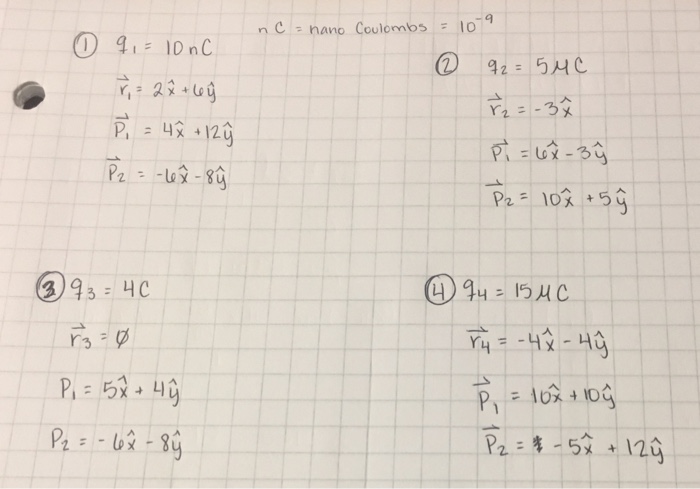 nC = nano Coulombs = 10⁻⁹
① q₁ = 10nC
r⃗₁ = 2x̂ + 6ŷ
P⃗₁ = 4x̂ + 12ŷ
P⃗₂ = -6x̂ - 8ŷ
② q₂ = 5μC
r⃗₂ = -3x̂
P⃗₁ = 6x̂ - 3ŷ
P⃗₂ = 10x̂ + 5ŷ
③ q₃ = 4C
r⃗₃ = ∅
P₁ = 5x̂ + 4ŷ
P₂ = -6x̂ - 8ŷ
④ q₄ = 15μC
r⃗₄ = -4x̂ - 4ŷ
P⃗₁ = 10x̂ + 10ŷ
P⃗₂ = -5x̂ + 12ŷ